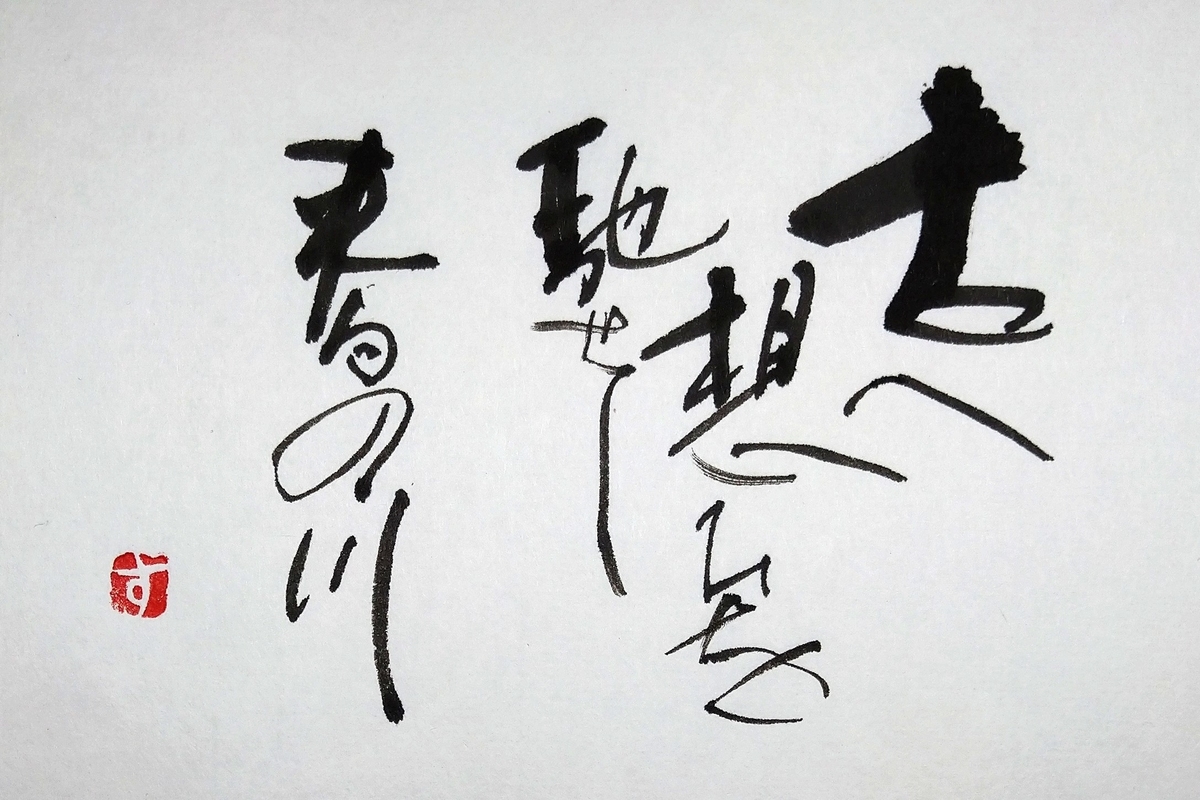 古へ
想ひを
馳せし
春の川
す